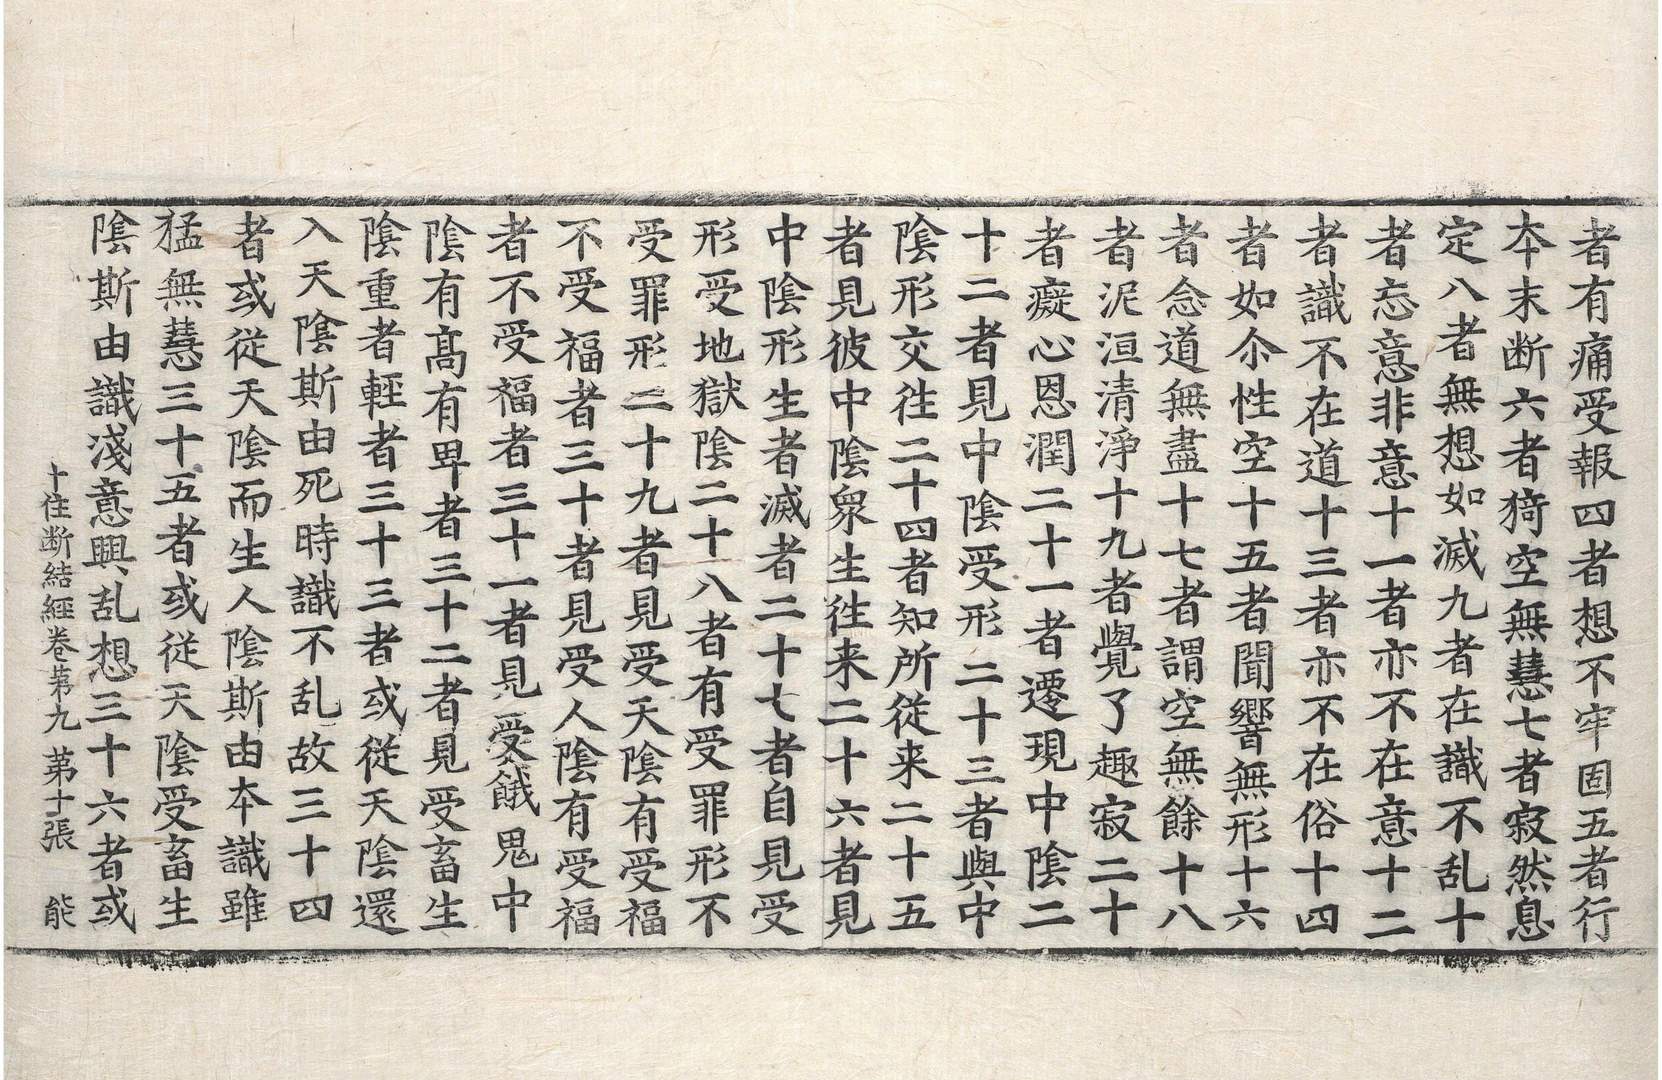 者有痛受報四者想不牢固五者行
本末断六者猗空無慧七者寂然息
定八者無想如滅九者在識不乱十
者忘意非意十一者亦不在意十二
者識不在道十三者亦不在俗十四
者如尒性空十五者聞響無形十六
者念道無盡十七者謂空無餘十八
者泥洹清淨十九者覺了趣寂二十
者癡心恩潤二十一者遷現中陰二
十二者見中陰受形二十三者與中
陰形交往二十四者知所従来二十五
者見彼中陰衆生往来二十六者見
中陰形生者滅者二十七者自見受
形受地獄陰二十八者有受罪形不
受罪形二十九者見受天陰有受福
不受福者三十者見受人陰有受福
者不受福者三十一者見受餓鬼中
陰有髙有卑者三十二者見受畜生
陰重者輕者三十三者或従天陰還
入天陰斯由死時識不乱故三十四
者或従天陰而生人陰斯由本識雖
猛無慧三十五者或従天陰受畜生
陰斯由識淺意興乱想三十六者或
十住断結經卷第九 第十張 能